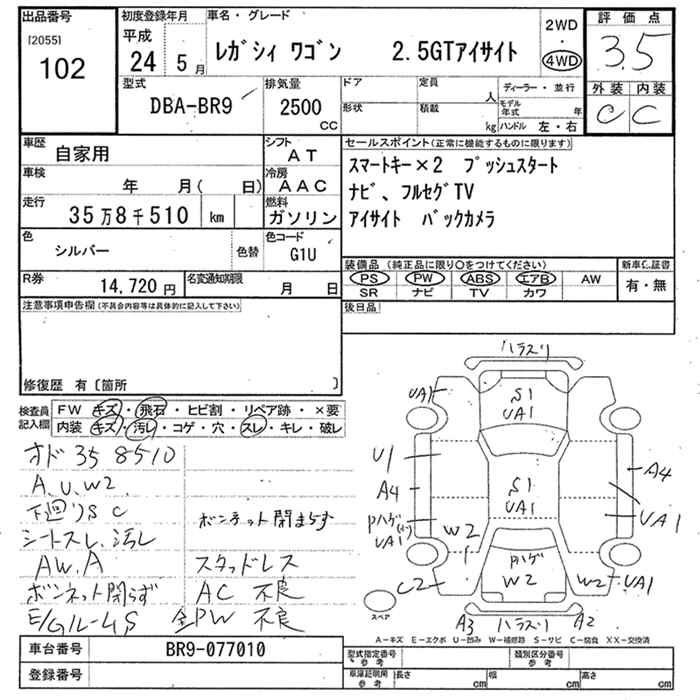 出品番号
[2055]
102
初度登録年月
平成
24 5 月
車名・グレード
レガシィ ワゴン 2.5GTアイサイト
2WD
・
4WD
評価点
3.5
外装 内装
C C
型式
DBA-BR9
排気量
2500
CC
ドア
形状
定員
人
積載
kg
ディーラー・並行
モデル年式 年
ハンドル 左・右
車歴
自家用
シフト
AT
車検
年 月( 日)
冷房
AAC
走行
35万8千510 km
燃料
ガソリン
色
シルバー
色替
色コード
G1U
R券
14,720 円
名変通知期限
月 日
セールスポイント(正常に機能するものに限ります)
スマートキー×2 プッシュスタート
ナビ、フルセグTV
アイサイト バックカメラ
装備品(純正品に限り○をつけてください)
PS PW ABS エアB AW
SR ナビ TV カワ
新車保証書
有・無
後日品
注意事項申告欄(不具合内容等は具体的に記入して下さい)
修復歴 有〔箇所 〕
検査員
記入欄
FW キズ・飛石・ヒビ割・リペア跡・×要
内装 キズ・汚レ・コゲ・穴・スレ・キレ・破レ
オド 358510
A.U.W2
下廻りS C
シートスレ.汚レ
AW.A
ボンネット閉らず
E/Gルーム S
ボンネット閉まらず
スタッドレス
AC 不良
全PW 不良
ハラスリ
UA1
S1
UA1
U1
A4
Pハゲ
UA1
S1
UA1
A4
UA1
W2
Pハゲ
W2
C2
W2
UA1
スペア
A3
ハラスリ
A2
A-キズ E-エクボ U-凹み W-補修跡 S-サビ C-腐食 XX-交換済
車台番号
BR9-077010
登録番号
型式指定番号
参考
類別区分番号
参考
車庫証明用
参考
長さ cm
幅 cm
高さ cm